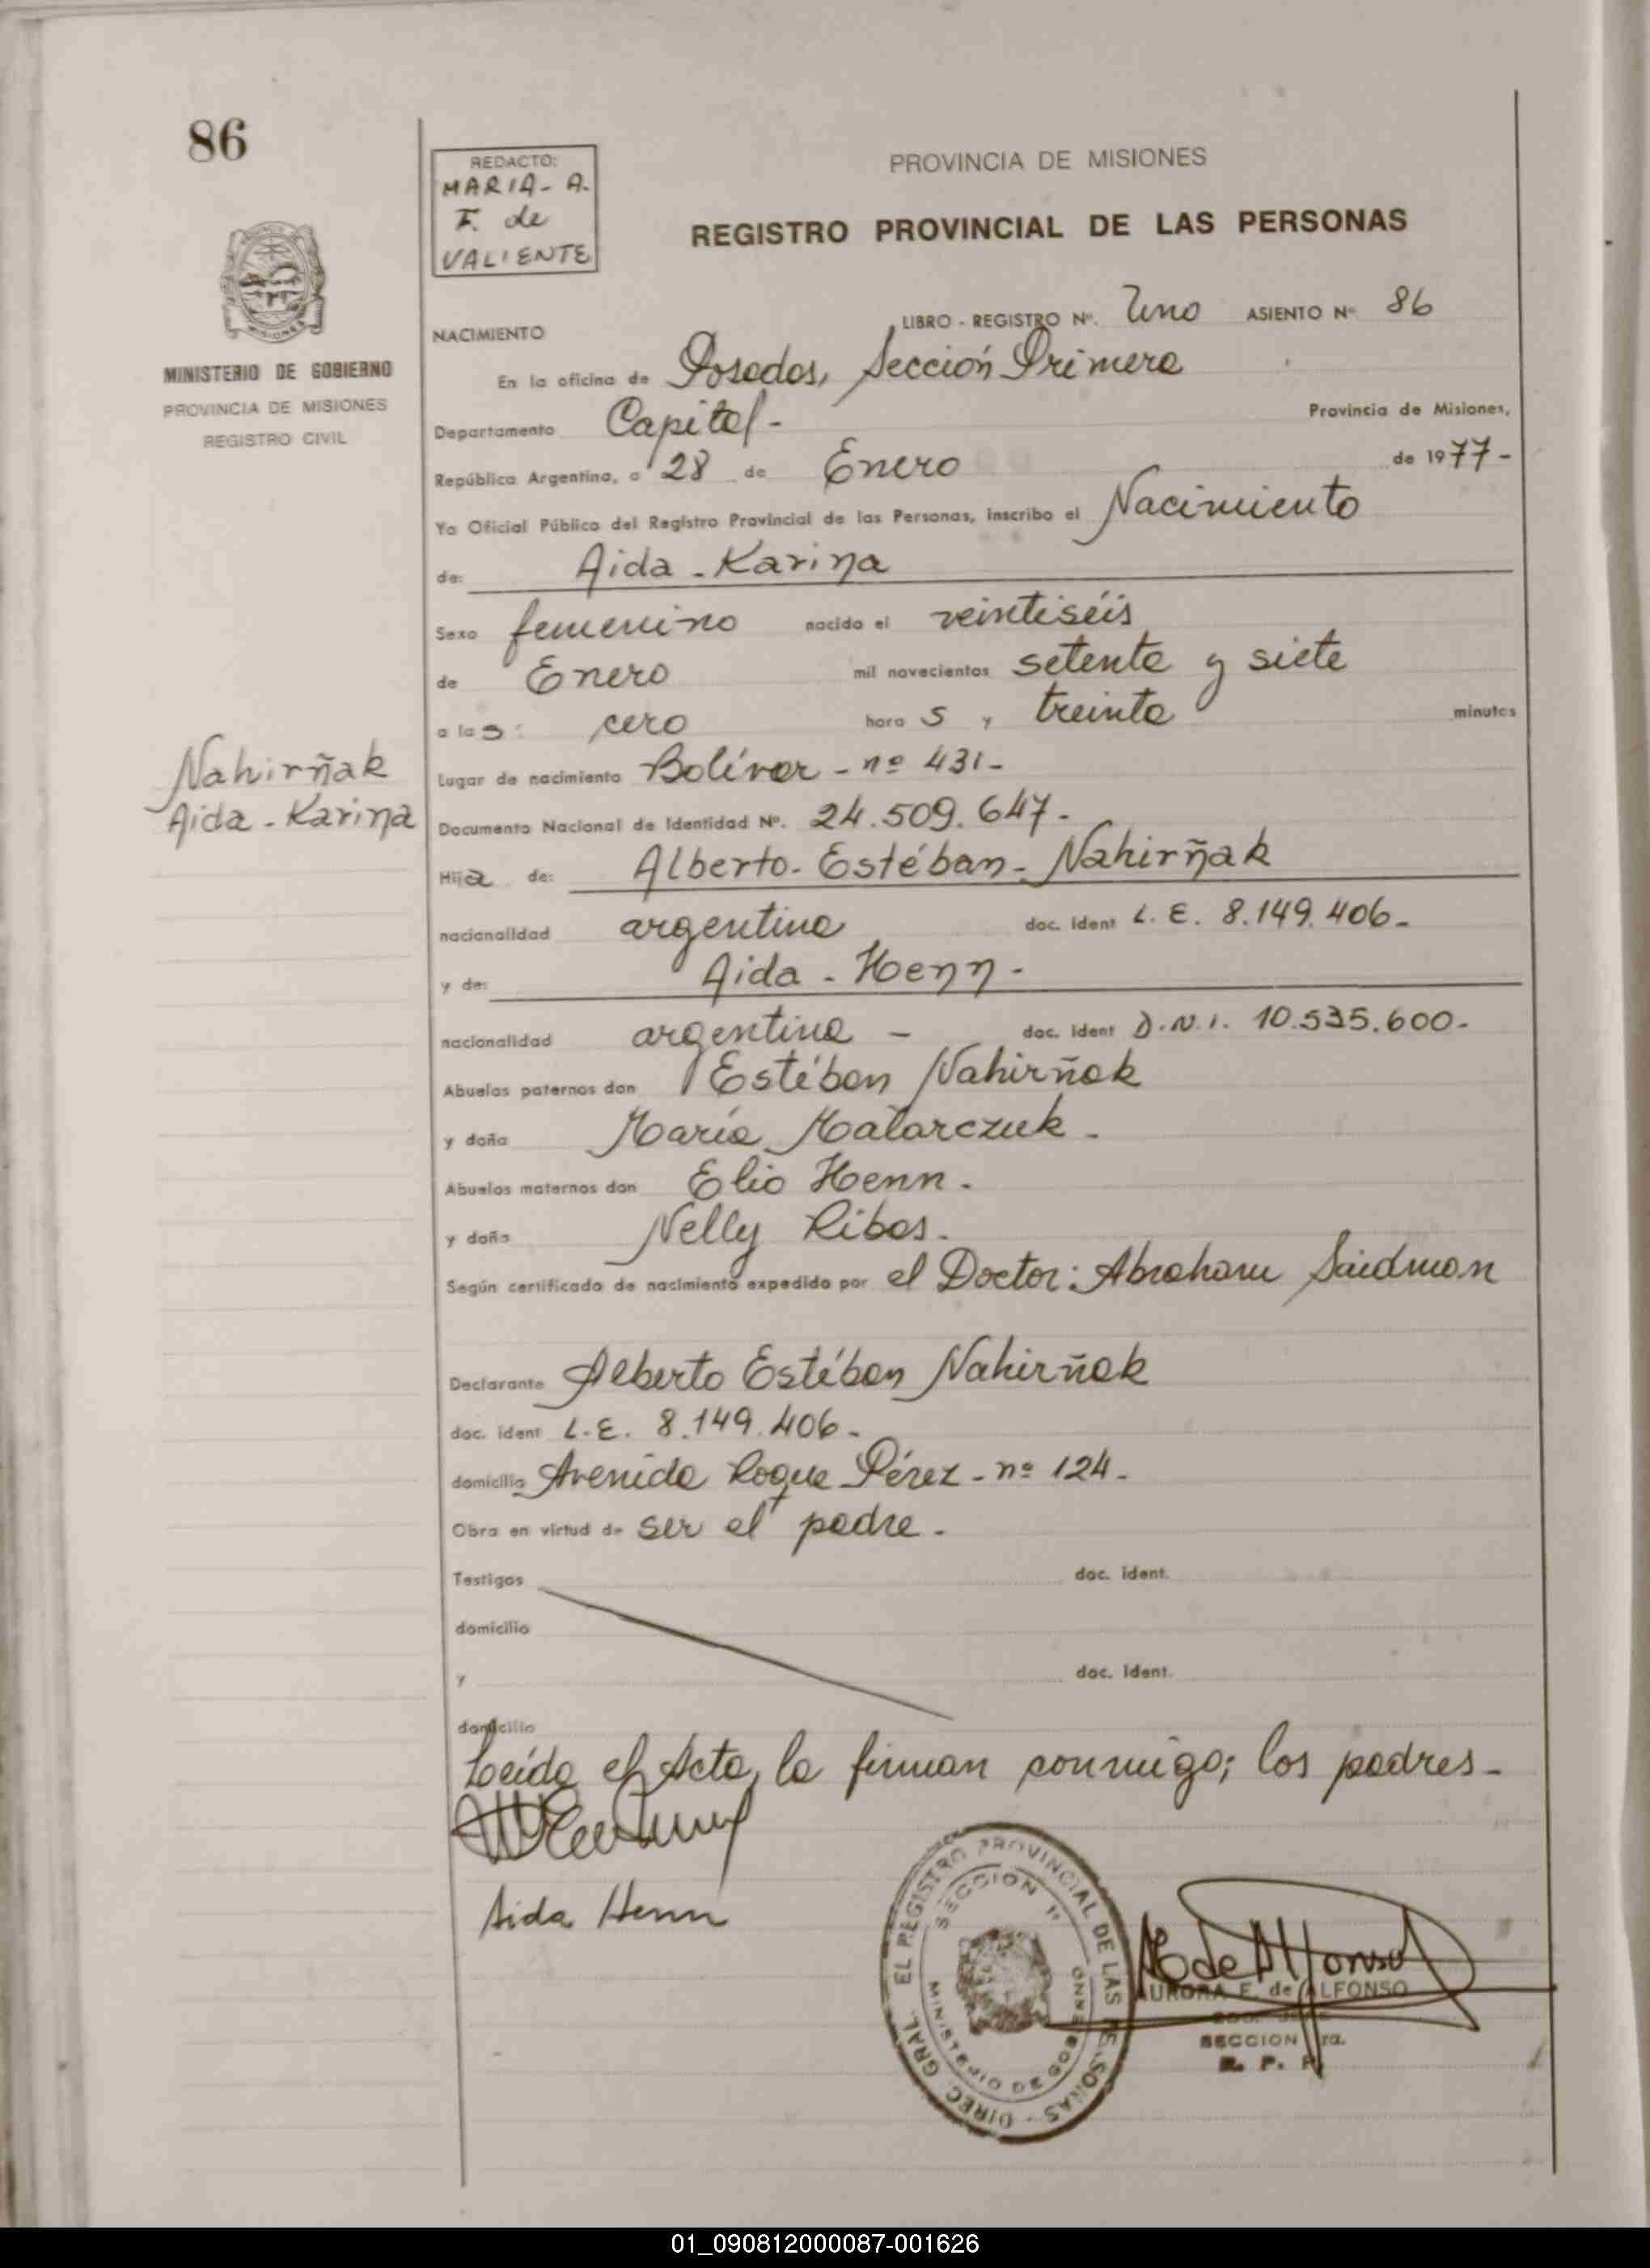 86
REDACTO:
MARIA - A.
F. de
VALIENTE
PROVINCIA DE MISIONES
REGISTRO PROVINCIAL DE LAS PERSONAS
MISIONES
MINISTERIO DE GOBIERNO
PROVINCIA DE MISIONES
REGISTRO CIVIL
LIBRO - REGISTRO Nº. Uno ASIENTO Nº 86
NACIMIENTO
En la oficina de Posadas, Sección Primera
Departamento Capital - Provincia de Misiones,
República Argentina, a 28 de Enero de 1977 -
Yo Oficial Público del Registro Provincial de las Personas, inscribo el Nacimiento
de: Aida - Karina
Sexo femenino nacido el veintiséis
de Enero mil novecientos setenta y siete
a las: cero hora s y treinta minutos
Nahirñak
Aida - Karina
Lugar de nacimiento Bolívar - nº 431 -
Documento Nacional de Identidad Nº. 24.509.647 -
Hija de: Alberto - Estéban - Nahirñak
nacionalidad argentina doc. ident L. E. 8.149.406 -
y de: Aida - Henn -
nacionalidad argentina - doc. ident D.N.I. 10.535.600 -
Abuelos paternos don Estéban Nahirñak
y doña María Malarczuk -
Abuelos maternos don Elio Henn -
y doña Nelly Ribas.
Según certificado de nacimiento expedido por el Doctor: Abraham Saidman
Declarante Alberto Estéban Nahirñak
doc. ident L.E. 8.149.406 -
domicilio Avenida Roque Pérez - nº 124 -
Obra en virtud de ser el padre -
Testigos doc. ident.
domicilio
y doc. ident.
domicilio
Leída el Acta, la firman conmigo; los padres -
Aida Henn
DIREC. GRAL. EL REGISTRO PROVINCIAL DE LAS PERSONAS
SECCION 1ª
MINISTERIO DE GOBIERNO
A E de Alfonso
AURORA E. de ALFONSO
SECCION 1ra.
R. P. P.
01_090812000087-001626